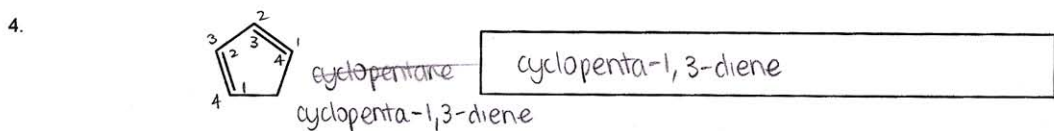 4.
2
3 2 3 4 1
4 1
cyclopentane cyclopenta-1,3-diene
cyclopenta-1,3-diene